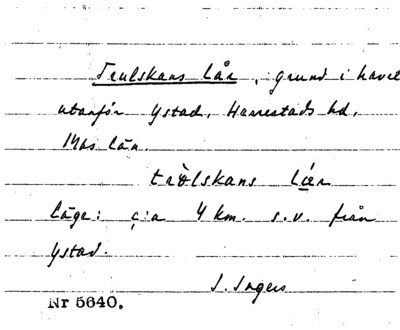 Trulskans lår, grund i havet
utanför Ystad, Herrestads hd,
Mös län.
trölskans lår
läge: c:a 4 km. s.v. från
Ystad.
S. Ingers
Nr 5640.